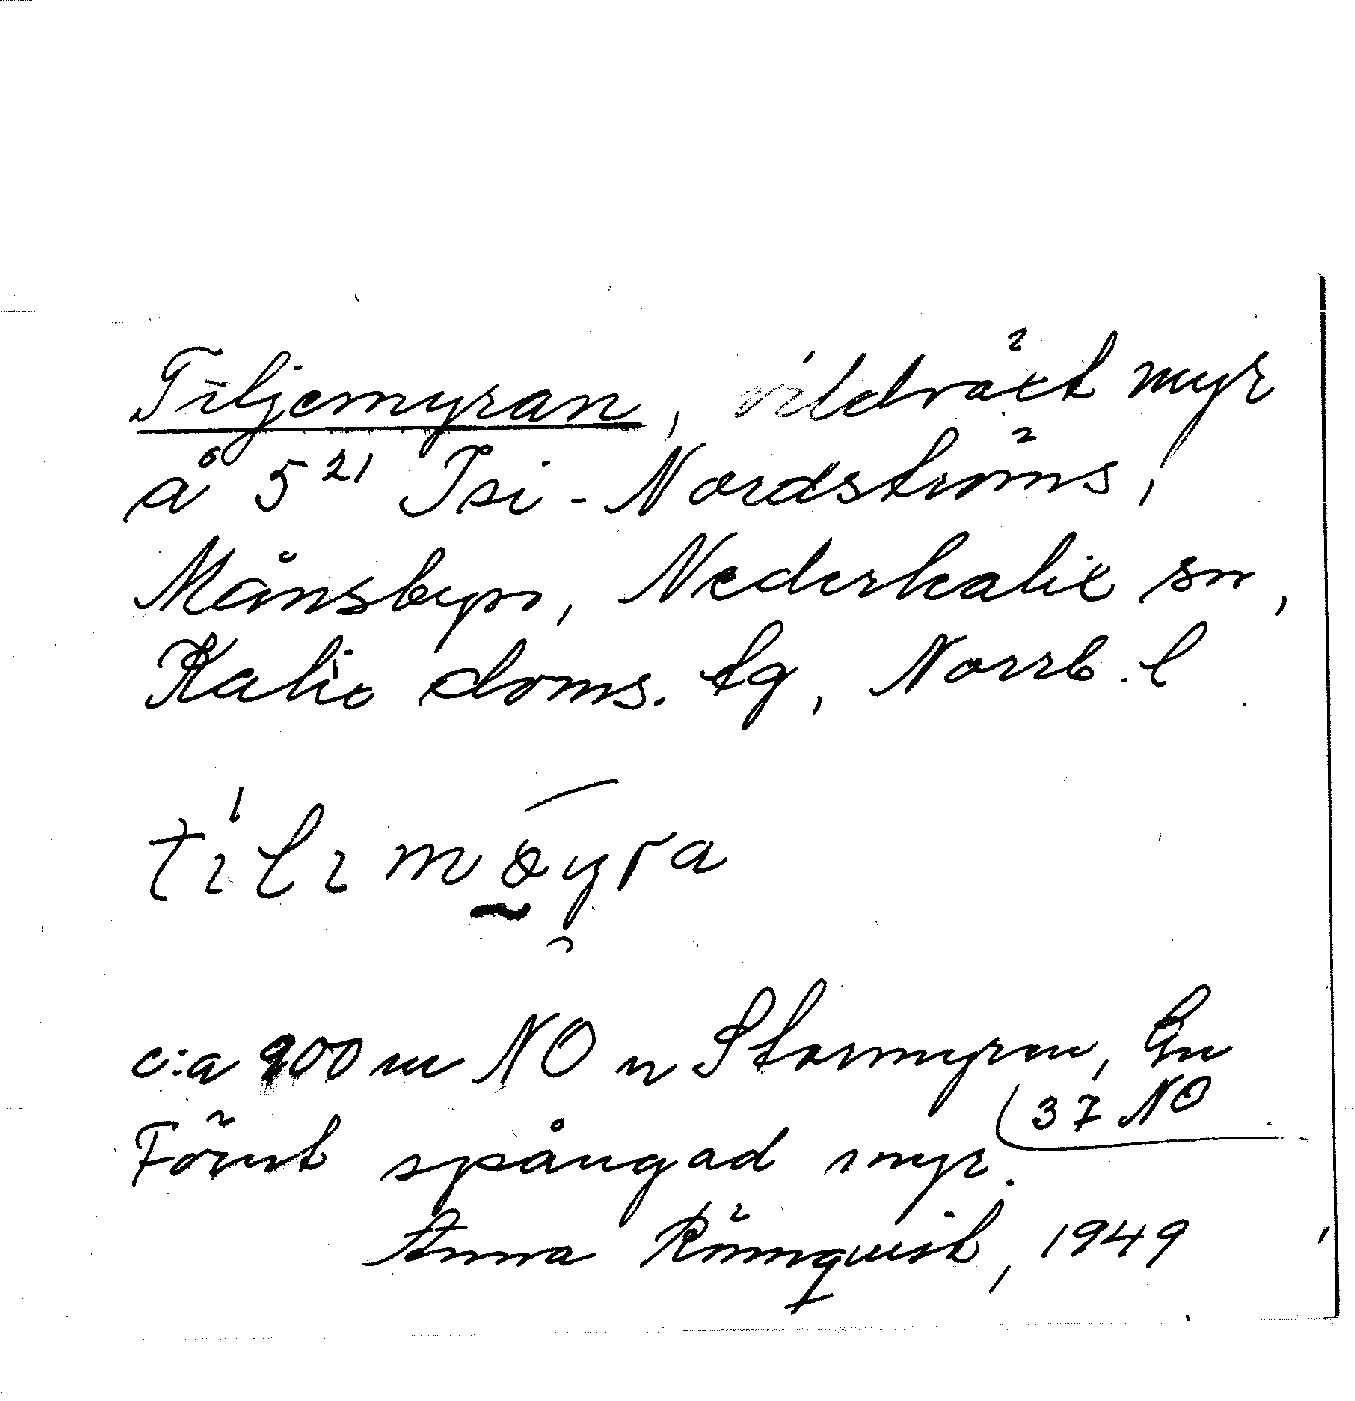 Tiljemyran, vildväxt myr
å 5²¹ Isi-Nordströms,
Månsbyn, Nederkalix sn,
Kalix doms. tg, Norrb. l
tılı møyra
c:a 900 m NO n Stormyren, Gn
37 NO
Förut spångad myr.
Anna Rönnqvist, 1949